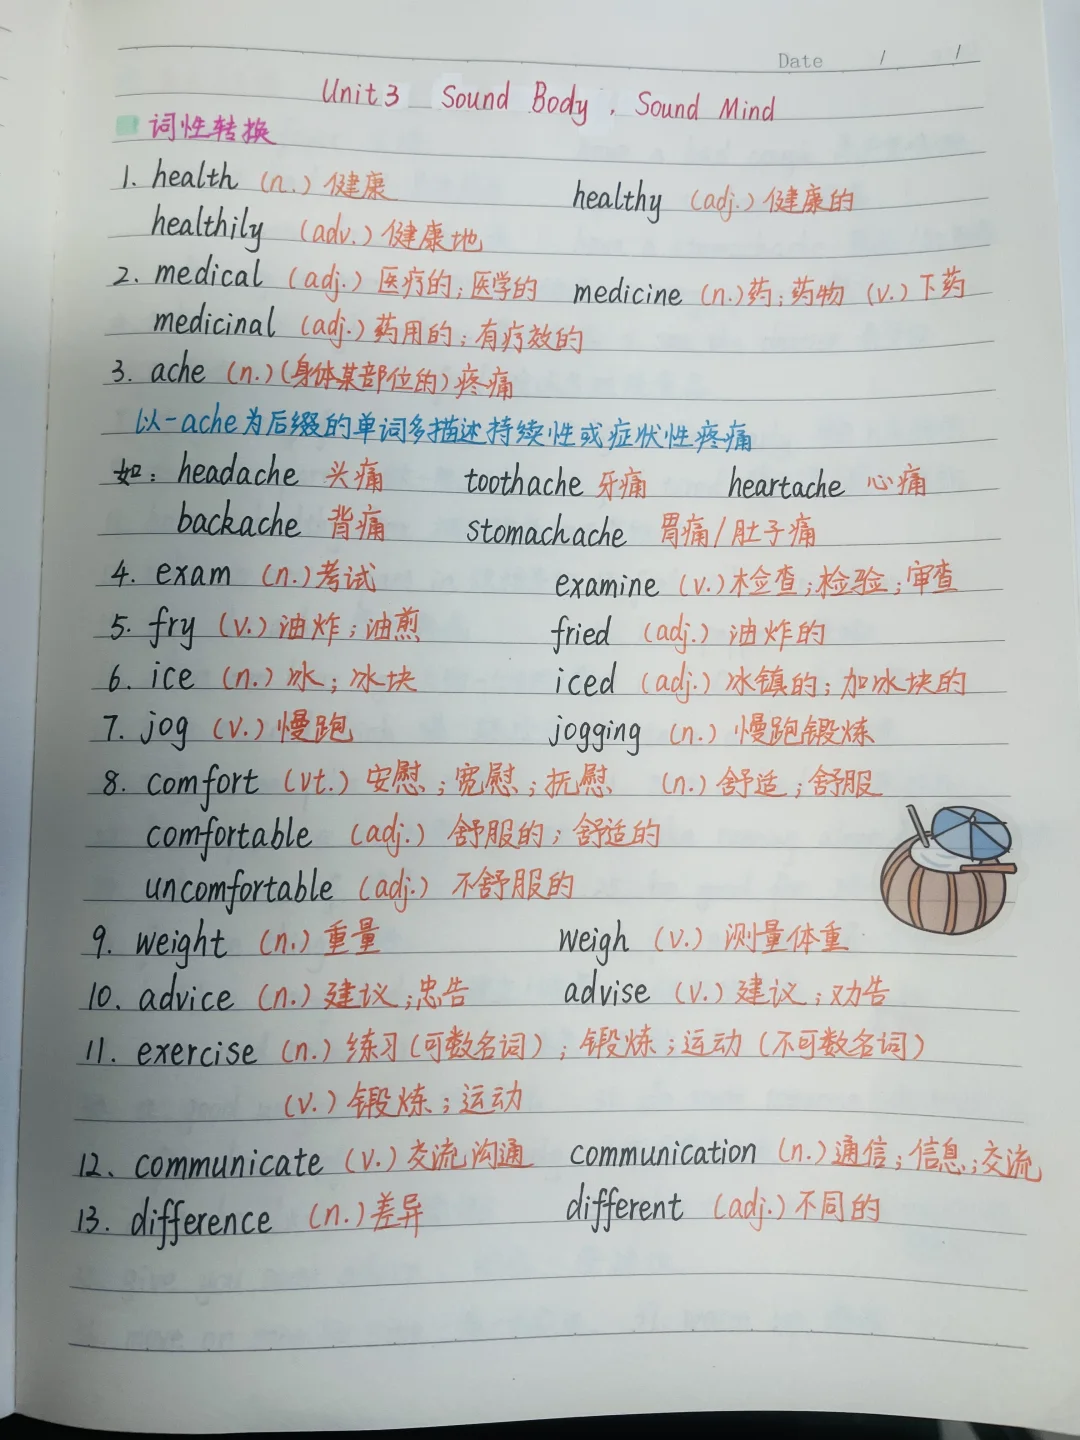 Date / /
Unit 3 Sound Body, Sound Mind
词性转换
1. health (n.) 健康 healthy (adj.) 健康的
healthily (adv.) 健康地
2. medical (adj.) 医疗的；医学的 medicine (n.) 药；药物 (v.) 下药
medicinal (adj.) 药用的；有疗效的
3. ache (n.) (身体某部位的) 疼痛
以-ache为后缀的单词多描述持续性或症状性疼痛
如：headache 头痛 toothache 牙痛 heartache 心痛
backache 背痛 stomachache 胃痛/肚子痛
4. exam (n.) 考试 examine (v.) 检查；检验；审查
5. fry (v.) 油炸；油煎 fried (adj.) 油炸的
6. ice (n.) 冰；冰块 iced (adj.) 冰镇的；加冰块的
7. jog (v.) 慢跑 jogging (n.) 慢跑锻炼
8. comfort (vt.) 安慰；宽慰；抚慰 (n.) 舒适；舒服
comfortable (adj.) 舒服的；舒适的
uncomfortable (adj.) 不舒服的
9. weight (n.) 重量 weigh (v.) 测量体重
10. advice (n.) 建议；忠告 advise (v.) 建议；劝告
11. exercise (n.) 练习(可数名词)；锻炼；运动 (不可数名词)
(v.) 锻炼；运动
12. communicate (v.) 交流沟通 communication (n.) 通信；信息；交流
13. difference (n.) 差异 different (adj.) 不同的